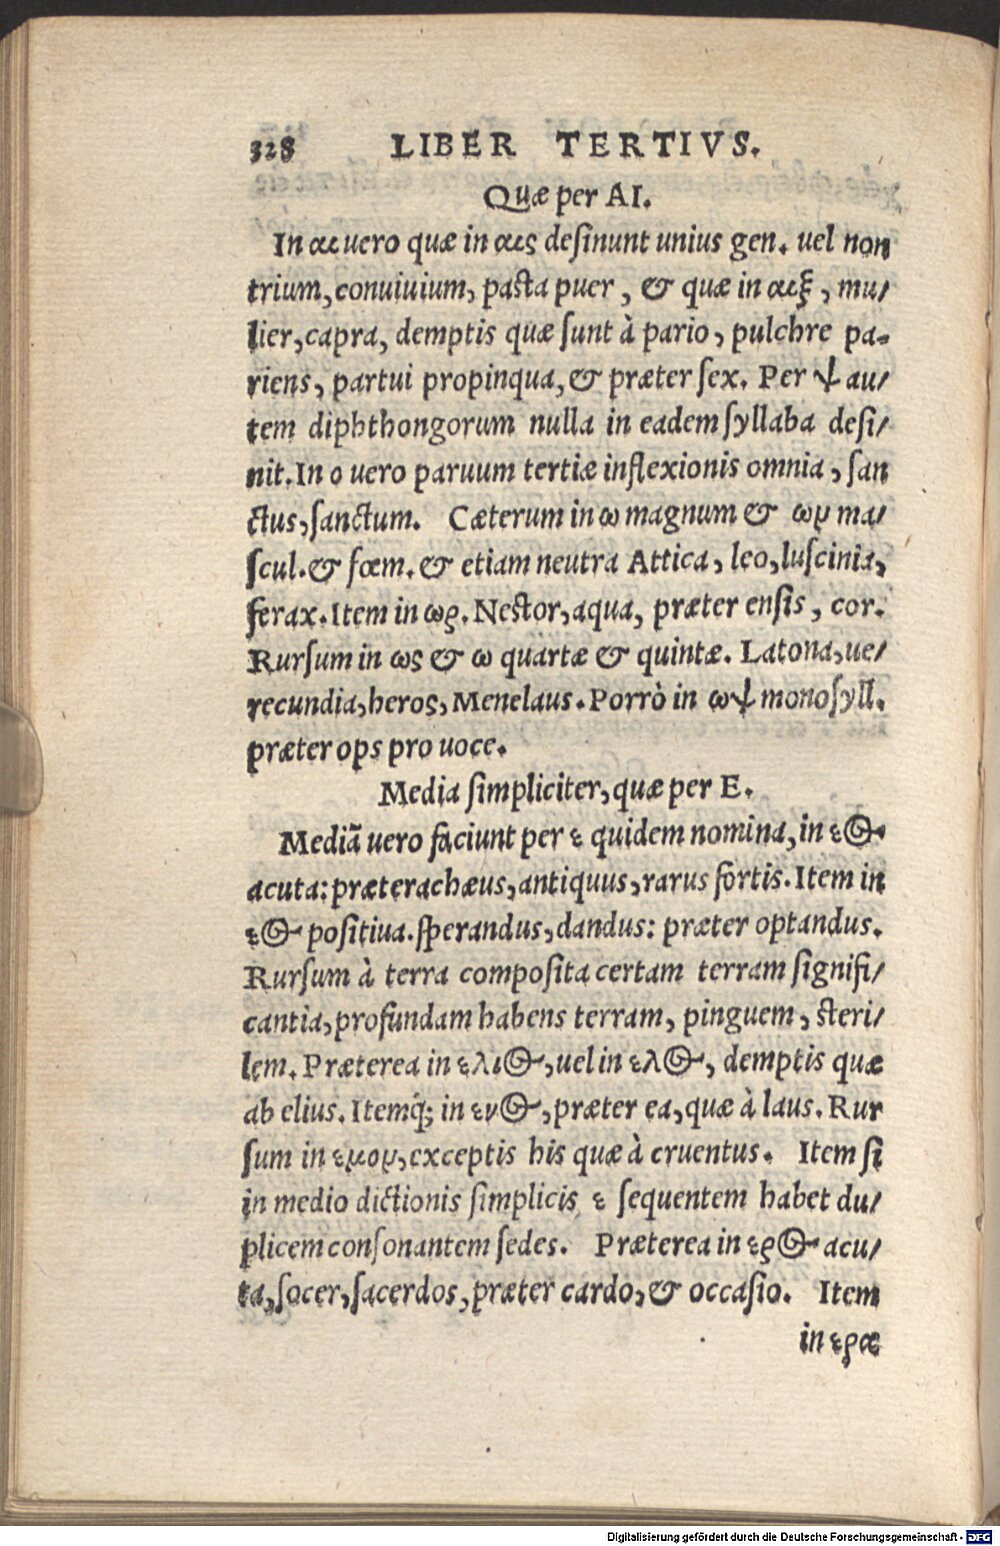 328 LIBER TERTIVS.
Quæ per AI.
In αι uero quæ in αις desinunt unius gen. uel non
trium, conuiuium, pasta puer, & quæ in αιξ, mu/
lier, capra, demptis quæ sunt à pario, pulchre pa-
riens, partui propinqua, & præter sex. Per ψ au/
tem diphthongorum nulla in eadem syllaba desi/
nit. In o uero paruum tertiæ inflexionis omnia, san
ctus, sanctum. Cæterum in ω magnum & ων ma/
scul. & fœm. & etiam neutra Attica, leo, luscinia,
ferax. Item in ωρ. Nestor, aqua, præter ensis, cor.
Rursum in ως & ω quartæ & quintæ. Latona, ue/
recundia, heros, Menelaus. Porrò in ωψ monosyll.
præter ops pro uoce.
Media simpliciter, quæ per E.
Mediã uero faciunt per ε quidem nomina, in εος
acuta: præter achæus, antiquus, rarus fortis. Item in
εος positiua. sperandus, dandus: præter optandus.
Rursum à terra composita certam terram signifi/
cantia, profundam habens terram, pinguem, steri/
lem. Præterea in ελιος, uel in ελος, demptis quæ
ab elius. Itemq́; in ενος, præter ea, quæ à laus. Rur
sum in εμον, exceptis his quæ à cruentus. Item si
in medio dictionis simplicis ε sequentem habet du/
plicem consonantem sedes. Præterea in ερος acu/
ta, socer, sacerdos, præter cardo, & occasio. Item
in ερα
Digitalisierung gefördert durch die Deutsche Forschungsgemeinschaft - DFG